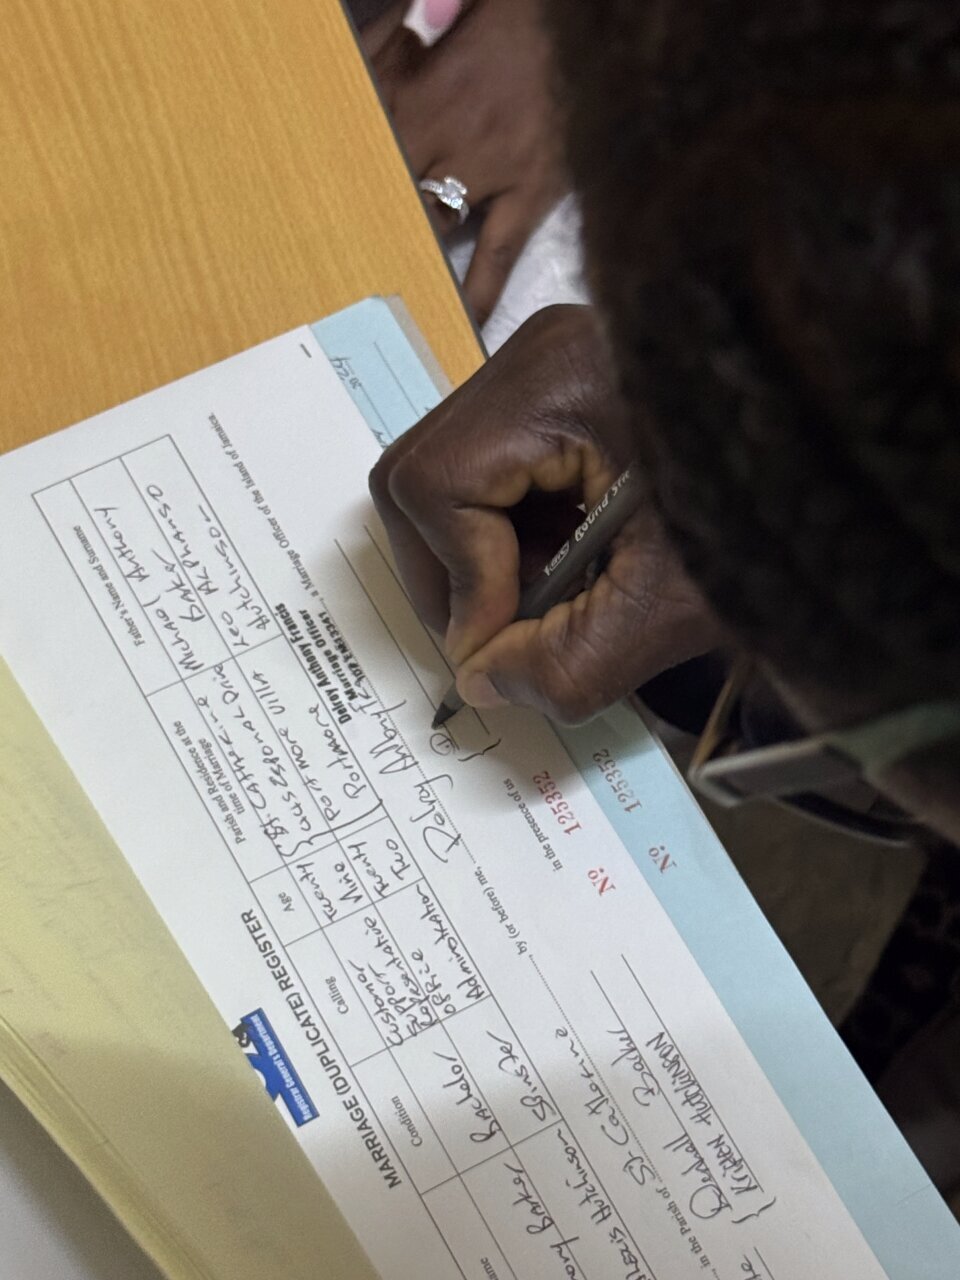 MARRIAGE (DUPLICATE) REGISTER
Registrar General's Department
Condition
Calling
Age
Parish and Residence at the
time of Marriage
Father's Name and Surname
Baker
Bachelor
Customer
Support
Representative
Twenty
Nine
St. Catherine
Drive
Portmore
Michael Anthony
Baker
Hutchinson
Spinster
Office
Administration
Twenty
Two
Villa
Portmore
Leo Alphanso
Hutchinson
in the Parish of St. Catherine
by (or before) me,
Delroy Anthony Francis
Marriage Officer
a Marriage Officer of the Island of Jamaica.
Baker
KRISTEN HUTCHINSON
in the presence of us
Nº 125352
Nº 125352
20 24
BIC Round Stic